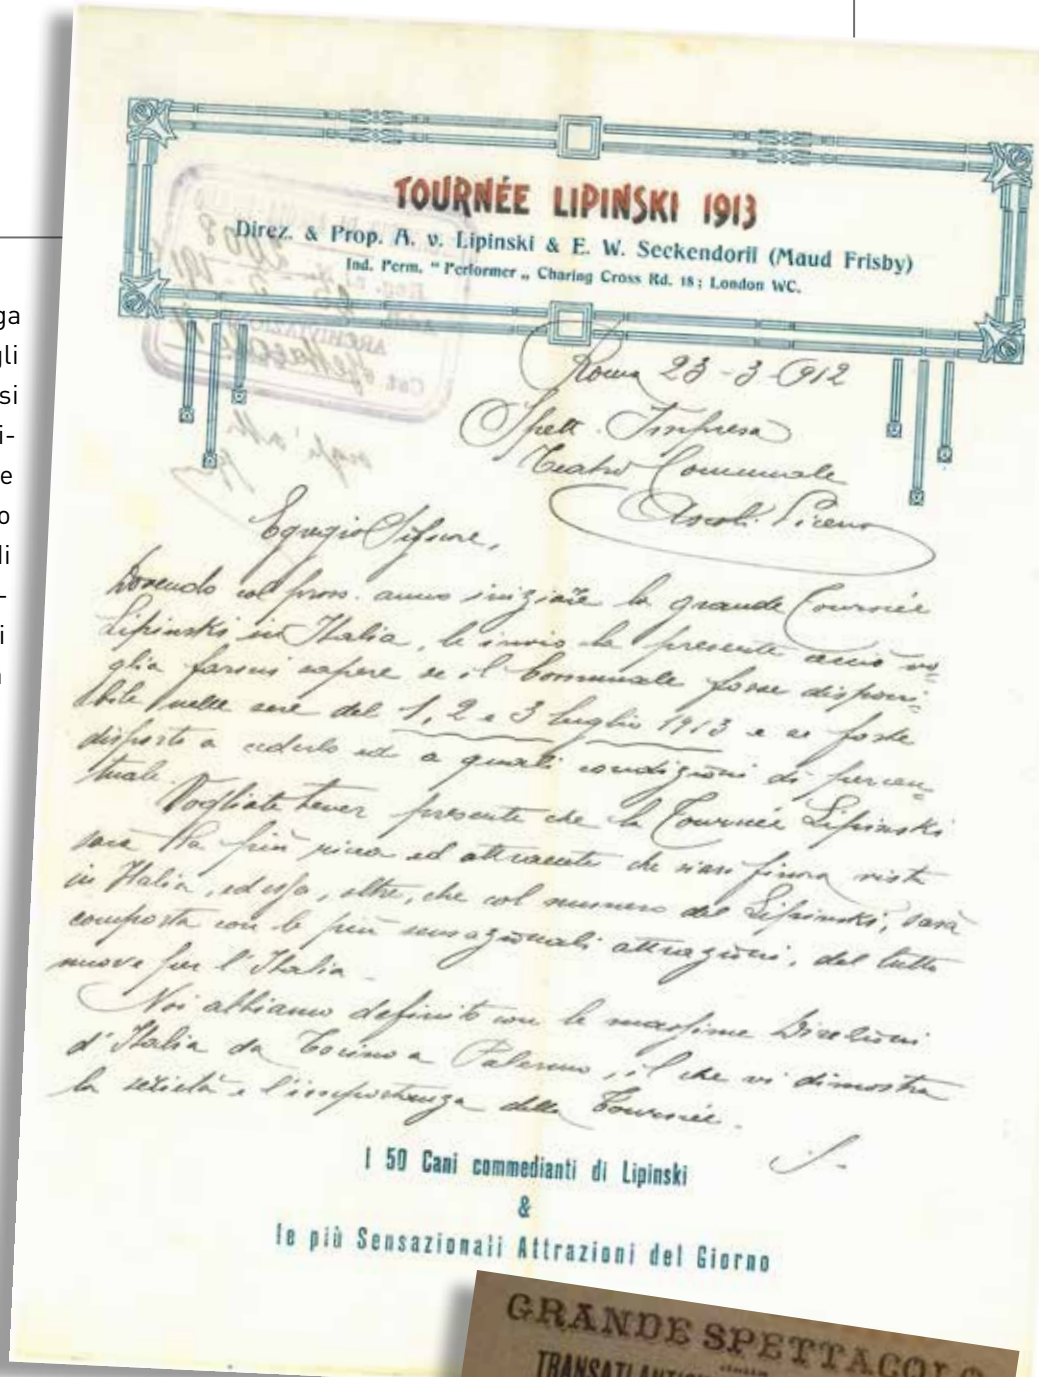 ga
gli
si
i-
e
o
li
-
i
TOURNÉE LIPINSKI 1913
Direz. & Prop. A. v. Lipinski & E. W. Seckendorff (Maud Frisby)
Ind. Perm. "Performer„ Charing Cross Rd. 18; London WC.
ARCHIVIAZIONE
Cat.
Roma 23-3-912
Spett. Impresa
Teatro Comunale
Ascoli Piceno
Egregio Signore,
Dovendo col pross. anno iniziare la grande Tournée
Lipinski in Italia, le invio la presente acciò vo-
glia farmi sapere se il Comunale fosse disponi-
bile nelle sere del 1, 2 e 3 luglio 1913 e se foste
disposti a cederlo ed a quali condizioni di percen-
tuale.
Vogliate tener presente che la Tournée Lipinski
sarà la più ricca ed attraente che siasi finora vista
in Italia, ed essa, oltre, che col numero del Lipinski, sarà
composta con le più sensazionali attrazioni, del tutto
nuove per l'Italia.
Noi abbiamo definito con le massime Direzioni
d'Italia da Torino a Palermo, il che vi dimostra
la serietà e l'importanza della Tournée.
I 50 Cani commedianti di Lipinski
&
le più Sensazionali Attrazioni del Giorno
GRANDE SPETTACOLO